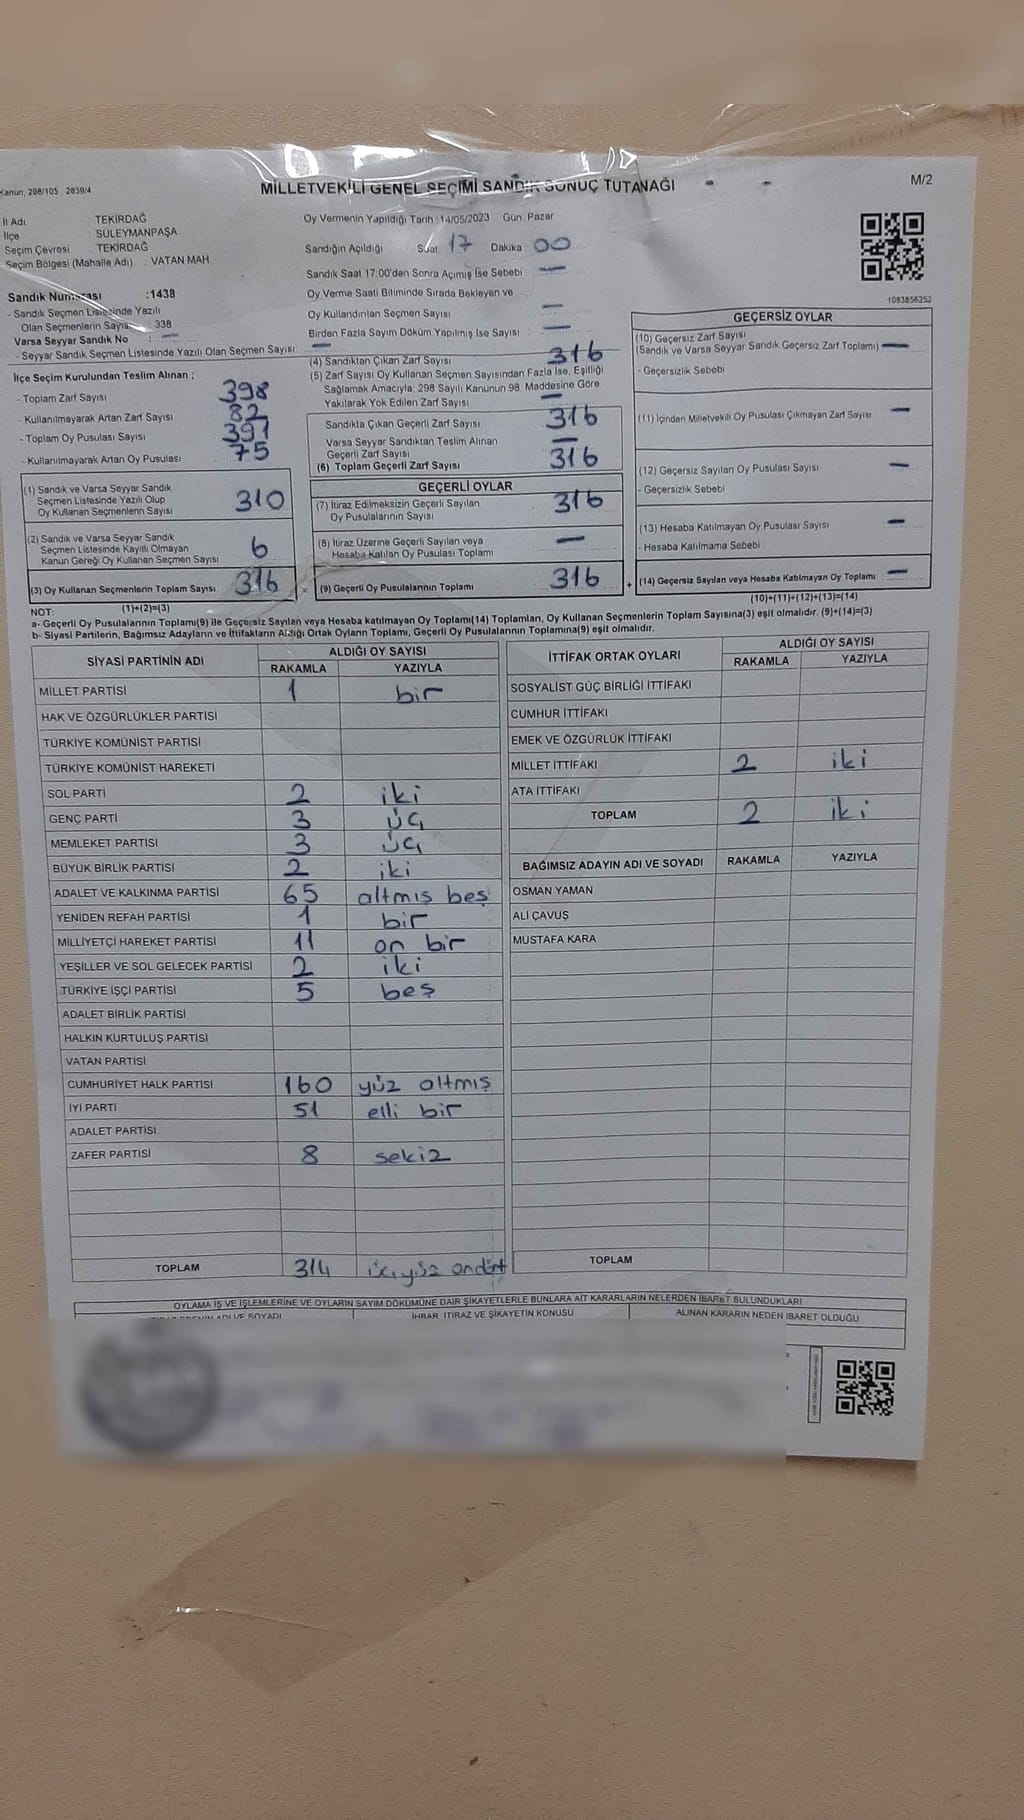 Kanun; 298/105 2839/4
MİLLETVEKİLİ GENEL SEÇİMİ SANDIK SONUÇ TUTANAĞI
M/2
İl Adı TEKİRDAĞ
İlçe SÜLEYMANPAŞA
Seçim Çevresi TEKİRDAĞ
Seçim Bölgesi (Mahalle Adı) : VATAN MAH.
Oy Vermenin Yapıldığı Tarih : 14/05/2023 Gün: Pazar
Sandığın Açıldığı Saat: 17 Dakika : 00
Sandık Saat 17:00'den Sonra Açımış İse Sebebi : —
Oy Verme Saati Bitiminde Sırada Bekleyen ve
Oy Kullandırılan Seçmen Sayısı : —
Birden Fazla Sayım Döküm Yapılmış İse Sayısı : —
Sandık Numarası :1438
- Sandık Seçmen Listesinde Yazılı
Olan Seçmenlerin Sayısı : 338
Varsa Seyyar Sandık No : —
- Seyyar Sandık Seçmen Listesinde Yazılı Olan Seçmen Sayısı: —
İlçe Seçim Kurulundan Teslim Alınan ;
- Toplam Zarf Sayısı 398
- Kullanılmayarak Artan Zarf Sayısı 82
- Toplam Oy Pusulası Sayısı 391
- Kullanılmayarak Artan Oy Pusulası 75
(1) Sandık ve Varsa Seyyar Sandık
Seçmen Listesinde Yazılı Olup
Oy Kullanan Seçmenlerin Sayısı 310
(2) Sandık ve Varsa Seyyar Sandık
Seçmen Listesinde Kayıtlı Olmayan
Kanun Gereği Oy Kullanan Seçmen Sayısı 6
(3) Oy Kullanan Seçmenlerin Toplam Sayısı 316
(1)+(2)=(3)
(4) Sandıktan Çıkan Zarf Sayısı 316
(5) Zarf Sayısı Oy Kullanan Seçmen Sayısından Fazla İse, Eşitliği
Sağlamak Amacıyla; 298 Sayılı Kanunun 98. Maddesine Göre
Yakılarak Yok Edilen Zarf Sayısı —
Sandıkta Çıkan Geçerli Zarf Sayısı 316
Varsa Seyyar Sandıktan Teslim Alınan
Geçerli Zarf Sayısı —
(6) Toplam Geçerli Zarf Sayısı 316
GEÇERLİ OYLAR
(7) İtiraz Edilmeksizin Geçerli Sayılan
Oy Pusulalarının Sayısı 316
(8) İtiraz Üzerine Geçerli Sayılan veya
Hesaba Katılan Oy Pusulası Toplamı —
(9) Geçerli Oy Pusulalarının Toplamı 316
1083856252
GEÇERSİZ OYLAR
(10) Geçersiz Zarf Sayısı
(Sandık ve Varsa Seyyar Sandık Geçersiz Zarf Toplamı) —
- Geçersizlik Sebebi
(11) İçinden Milletvekili Oy Pusulası Çıkmayan Zarf Sayısı —
(12) Geçersiz Sayılan Oy Pusulası Sayısı —
- Geçersizlik Sebebi
(13) Hesaba Katılmayan Oy Pusulası Sayısı —
- Hesaba Katılmama Sebebi
+ (14) Geçersiz Sayılan veya Hesaba Katılmayan Oy Toplamı —
(10)+(11)+(12)+(13)=(14)
NOT:
a- Geçerli Oy Pusulalarının Toplamı(9) ile Geçersiz Sayılan veya Hesaba katılmayan Oy Toplamı(14) Toplamları, Oy Kullanan Seçmenlerin Toplam Sayısına(3) eşit olmalıdır. (9)+(14)=(3)
b- Siyasi Partilerin, Bağımsız Adayların ve İttifakların Aldığı Ortak Oyların Toplamı, Geçerli Oy Pusulalarının Toplamına(9) eşit olmalıdır.
SİYASİ PARTİNİN ADI ALDIĞI OY SAYISI
RAKAMLA YAZIYLA
MİLLET PARTİSİ 1 bir
HAK VE ÖZGÜRLÜKLER PARTİSİ
TÜRKİYE KOMÜNİST PARTİSİ
TÜRKİYE KOMÜNİST HAREKETİ
SOL PARTİ 2 iki
GENÇ PARTİ 3 üç
MEMLEKET PARTİSİ 3 üç
BÜYÜK BİRLİK PARTİSİ 2 iki
ADALET VE KALKINMA PARTİSİ 65 altmış beş
YENİDEN REFAH PARTİSİ 1 bir
MİLLİYETÇİ HAREKET PARTİSİ 11 on bir
YEŞİLLER VE SOL GELECEK PARTİSİ 2 iki
TÜRKİYE İŞÇİ PARTİSİ 5 beş
ADALET BİRLİK PARTİSİ
HALKIN KURTULUŞ PARTİSİ
VATAN PARTİSİ
CUMHURİYET HALK PARTİSİ 160 yüz altmış
İYİ PARTİ 51 elli bir
ADALET PARTİSİ
ZAFER PARTİSİ 8 sekiz
TOPLAM 314
İTTİFAK ORTAK OYLARI ALDIĞI OY SAYISI
RAKAMLA YAZIYLA
SOSYALİST GÜÇ BİRLİĞİ İTTİFAKI
CUMHUR İTTİFAKI
EMEK VE ÖZGÜRLÜK İTTİFAKI
MİLLET İTTİFAKI 2 iki
ATA İTTİFAKI
TOPLAM 2 iki
BAĞIMSIZ ADAYIN ADI VE SOYADI RAKAMLA YAZIYLA
OSMAN YAMAN
ALİ ÇAVUŞ
MUSTAFA KARA
TOPLAM
OYLAMA İŞ VE İŞLEMLERİNE VE OYLARIN SAYIM DÖKÜMÜNE DAİR ŞİKAYETLERLE BUNLARA AİT KARARLARIN NELERDEN İBARET BULUNDUKLARI
ADI VE SOYADI İHBAR, İTİRAZ VE ŞİKAYETİN KONUSU ALINAN KARARIN NEDEN İBARET OLDUĞU